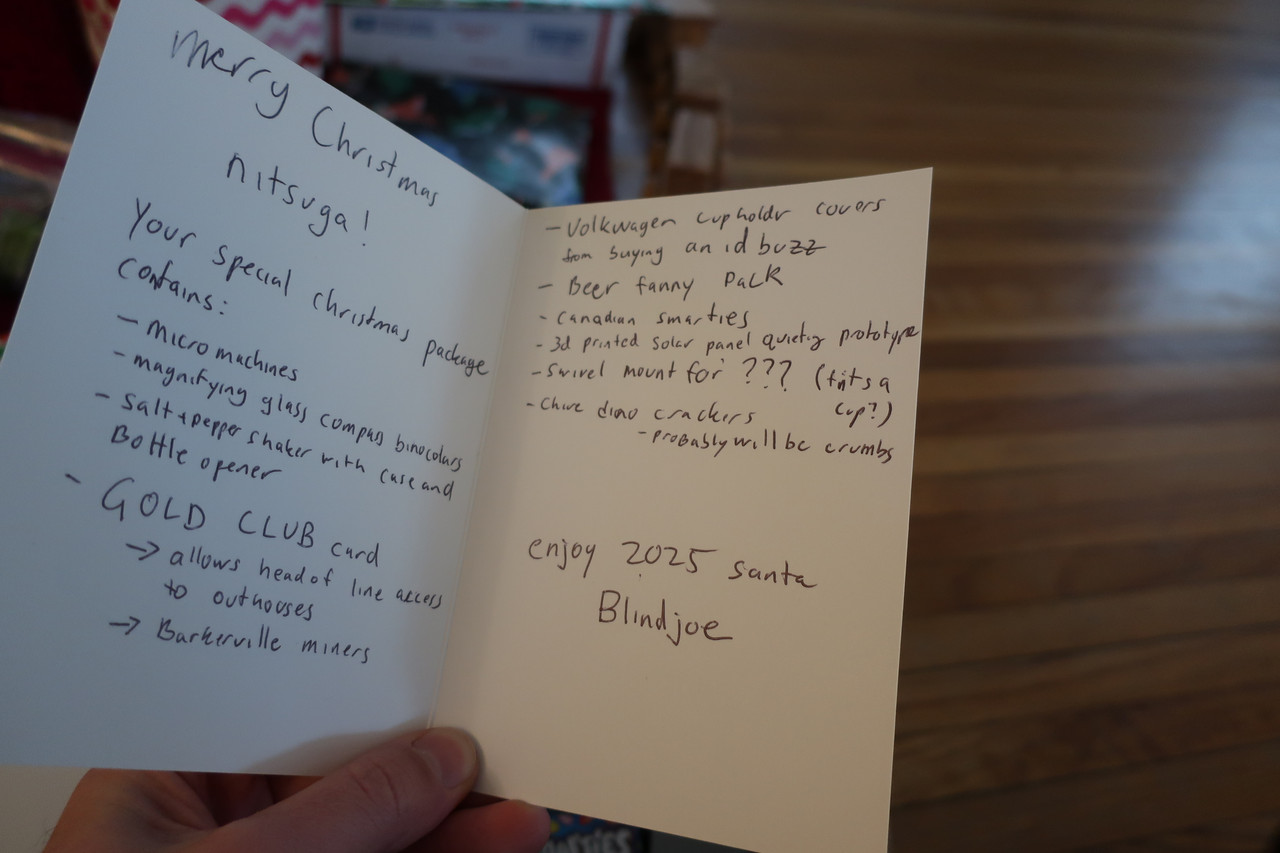 Merry Christmas
nitsuga!
Your special christmas package
contains:
- micro machines
- magnifying glass compass binoculars
- salt + pepper shaker with case and
Bottle opener
- GOLD CLUB card
→ allows head of line access
to outhouses
→ Barkerville miners
- Volkwagen cupholdr covers
from buying an id buzz
- Beer fanny pack
- Canadian smarties
- 3d printed solar panel prototype
- Swivel mount for ??? (fits a
cup?)
- Chive dino crackers
- probably will be crumbs
enjoy 2025 santa
Blindjoe